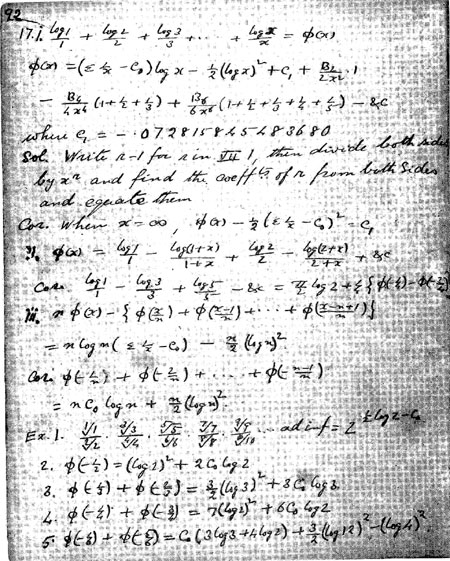 92
17. i. log 1/1 + log 2/2 + log 3/3 + ... + log x/x = φ(x)
φ(x) = (Σ 1/x − C₀) log x − ½ (log x)² + C₁ + B₂/2x² · 1
− B₄/4x⁴ (1 + ½ + ⅓) + B₆/6x⁶ (1 + ½ + ⅓ + ¼ + ⅕) − &c
where C₁ = − .072815845483680
Sol. Write r−1 for r in VII 1, then divide both sides
by xʳ and find the coeff^ts of r from both sides
and equate them
Cor. When x = ∞, φ(x) − ½ (Σ 1/x − C₀)² = C₁
ii. φ(x) = log 1/1 − log(1+x)/(1+x) + log 2/2 − log(2+x)/(2+x) + &c
Cor. log 1/1 − log 3/3 + log 5/5 − &c =
iii. n φ(x) − { φ(x/n) + φ((x−1)/n) + ... + φ((x−n+1)/n) }
= n log n ( Σ 1/x − C₀) − n/2 (log n)².
Cor. φ(−1/n) + φ(−2/n) + .... + φ(−(n−1)/n)
= n C₀ log n + n/2 (log n)².
Ex. 1. ¹√1/²√2 · ³√3/⁴√4 · ⁵√5/⁶√6 · ⁷√7/⁸√8 · ⁹√9/¹⁰√10 ... ad inf = 2^(½ log 2 − C₀)
2. φ(−½) = (log 2)² + 2 C₀ log 2
3. φ(−⅓) + φ(−⅔) = 3/2 (log 3)² + 3 C₀ log 3
4. φ(−¼) + φ(−¾) = 7 (log 2)² + 6 C₀ log 2
5. φ(−1/6) + φ(−5/6) = C₀ (3 log 3 + 4 log 2) + 3/2 (log 12)² − (log 4)²